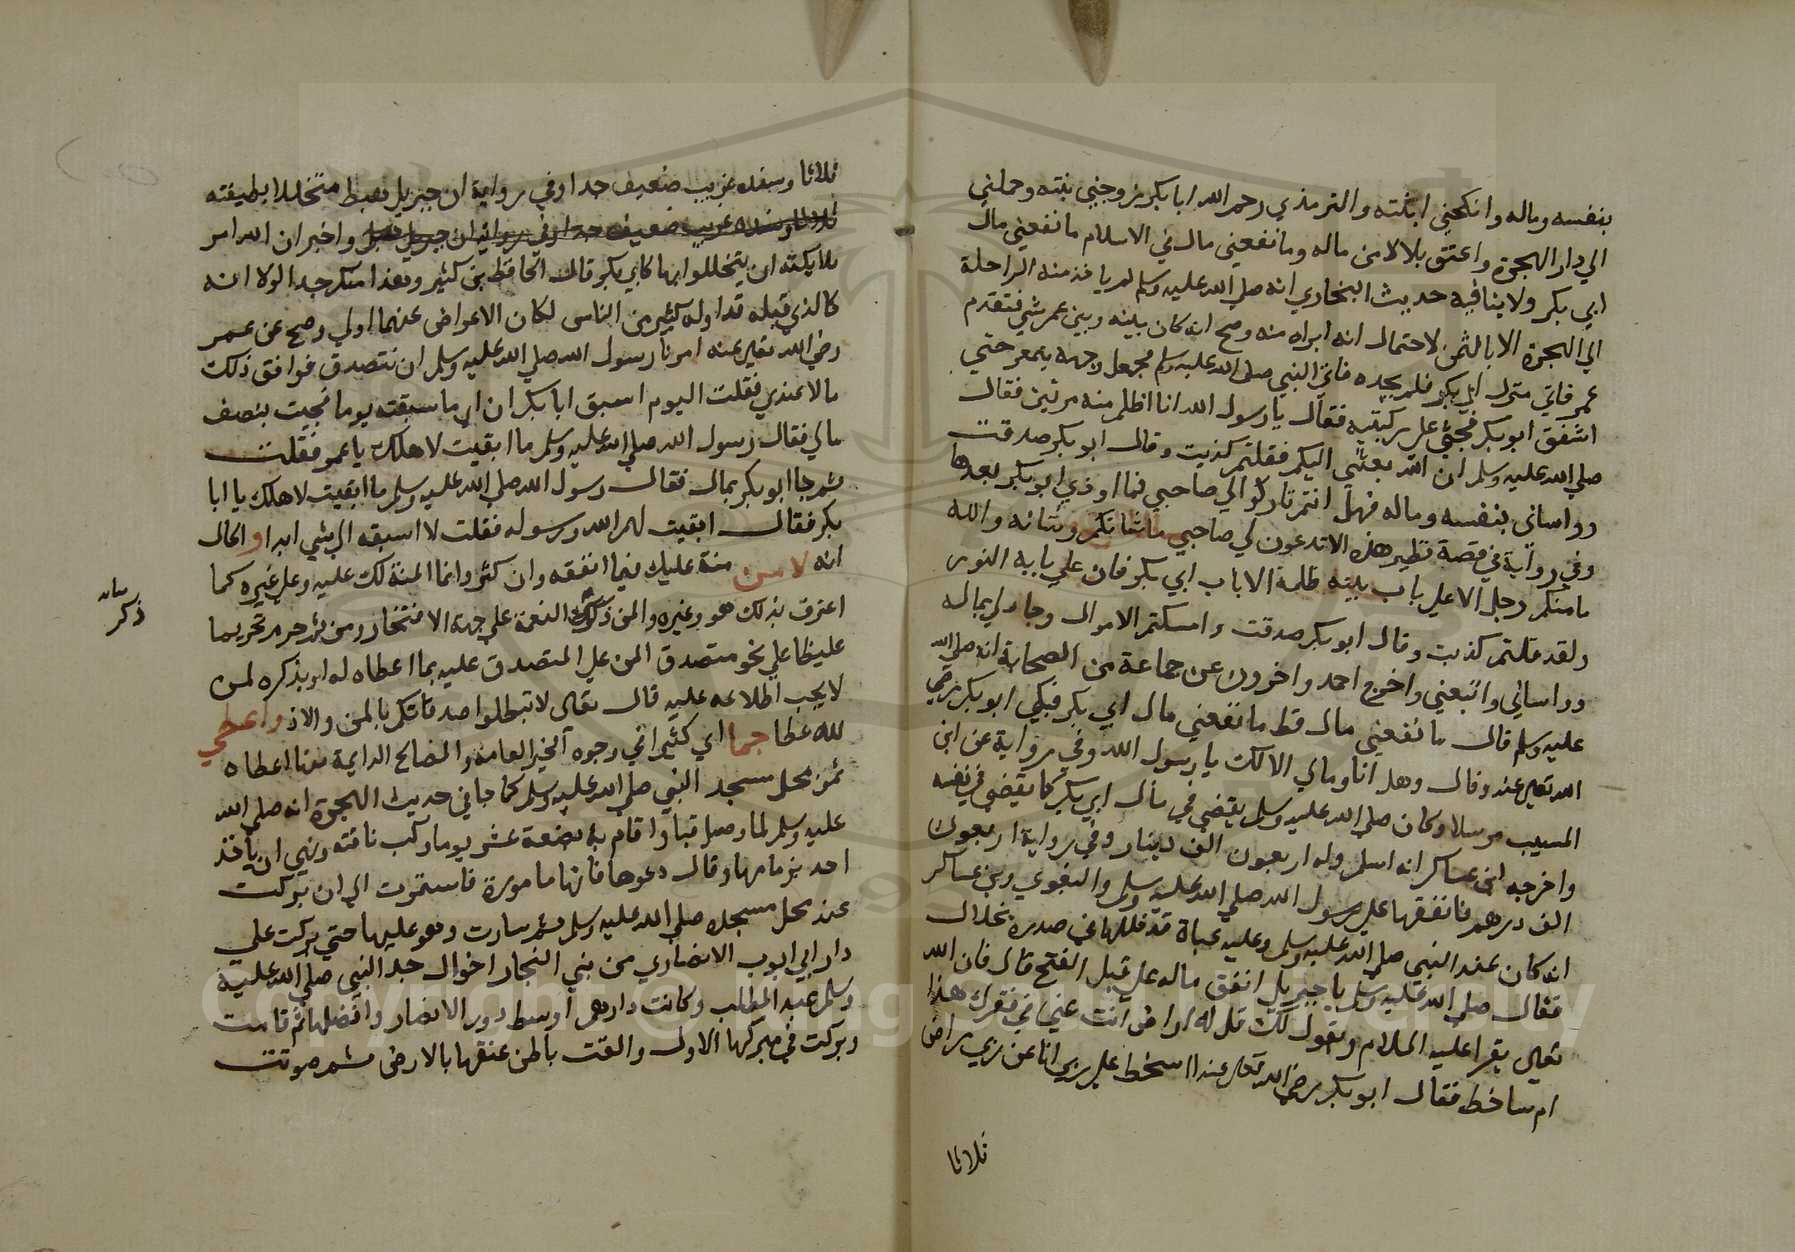 بنفسه وماله وانكحني ابنته والترمذي رحم الله ابا بكر زوجني بنته وحملني
الي دار الهجرة واعتق بلالا من ماله وما نفعني مال في الاسلام ما نفعني مال
ابي بكر ولا ينافيه حديث البخاري انه صلي الله عليه وسلم لم ياخذ منه الراحلة
الي الهجرة الا بالثمن لاحتمال انه ابراه منه وصح انه كان بينه وبين عمر شي فتقدم
عمر فاتي منزل ابي بكر فلم يجده فاتي النبي صلي الله عليه وسلم فجعل وجهه يتمعر حتي
اشفق ابو بكر فجثي علي ركبتيه فقال يا رسول الله انا اظلم منه مرتين فقال
صلي الله عليه وسلم ان الله بعثني اليكم فقلتم كذبت وقال ابو بكر صدقت
وواساني بنفسه وماله فهل انتم تاركوا لي صاحبي فما اوذي ابو بكر بعدها
وفي رواية في قصة نظير هذه الا تدعون لي صاحبي ما شانكم وشانه والله
ما منكم رجل الا علي باب بيته ظلمة الا باب ابي بكر فان علي بابه النور
ولقد قلتم كذبت وقال ابو بكر صدقت وامسكتم الاموال وجاد لي بماله
وواساني واتبعني واخرج احمد واخرون عن جماعة من الصحابة انه صلي الله
عليه وسلم قال ما نفعني مال قط ما نفعني مال ابي بكر فبكي ابو بكر رضي
الله تعالي عنه وقال وهل انا ومالي الا لك يا رسول الله وفي رواية عن ابن
المسيب مرسلا وكان صلي الله عليه وسلم يقضي في مال ابي بكر كما يقضي في نفسه
واخرج ابن عساكر انه اسلم وله اربعون الف دينار وفي رواية اربعون
الف درهم فانفقها علي رسول الله صلي الله عليه وسلم والبغوي وبن عساكر
انه كان عند النبي صلي الله عليه وسلم وعليه عباة قد خللها في صدره بخلال
فقال صلي الله عليه وسلم يا جبريل انفق ماله علي قبل الفتح قال فان الله
تعالي يقرا عليه السلام ويقول لك قل له اراض انت عني في فقرك هذا
ام ساخط فقال ابو بكر رضي الله تعالي عنه ااسخط علي ربي انا عن ربي راض
ثلاثا
ثلاثا وسنده غريب ضعيف جدا وفي رواية ان جبريل هبط متخللا بطيفته
واخبر ان الله امر
ملايكته ان يتخللوا بها كابي بكر قال الحافظ بن كثير وهذا منكر جدا لولا انه
كالذي قبله تداوله كثير من الناس لكان الاعراض عنهما اولي وصح عن عمر
رضي الله تعالي عنه امرنا رسول الله صلي الله عليه وسلم ان نتصدق فوافق ذلك
مالا عندي فقلت اليوم اسبق ابا بكر ان ما سبقته يوما فجيت بنصف
مالي فقال رسول الله صلي الله عليه وسلم ما ابقيت لاهلك يا عمر فقلت
ثم جا ابو بكر بمال فقال رسول الله صلي الله عليه وسلم ما ابقيت لاهلك يا ابا
بكر فقال ابقيت لهم الله ورسوله فقلت لا اسبقه الي شي ابدا و الحال
انه لا من منة عليك فيما انفقه وان كثر وانما المنة لك عليه وعلي غيره كما
اعترف بذلك هو وغيره والمن ذكرك النعمة علي جهة الافتخار ومن ثم حرم تحريما
غليظا علي نحو متصدق المن علي المتصدق عليه بما اعطاه له او يذكره لمن
لا يحب اطلاعه عليه قال تعالي لا تبطلوا صدقاتكم بالمن والاذي واعطي
لله عطا جما اي كثيرا في وجوه الخير العامة والمصالح الدايمة
ثمن محل مسجد النبي صلي الله عليه وسلم كما جا في حديث الهجرة انه صلي الله
عليه وسلم لما وصل قبا واقام به بضعة عشر يوما ركب ناقته ونهي ان ياخذ
احد بزمامها وقال دعوها فانها مامورة فاستمرت الي ان بركت
عند محل مسجده صلي الله عليه وسلم ثم سارت وهو عليها حتي بركت علي
دار ابي ايوب الانصاري من بني النجار اخوال جد النبي صلي الله عليه
وسلم عبد المطلب وكانت دارهم اوسط دور الانصار وافضلها ثم قامت
وبركت في مبركها الاول والقت باطن عنقها بالارض ثم صوتت